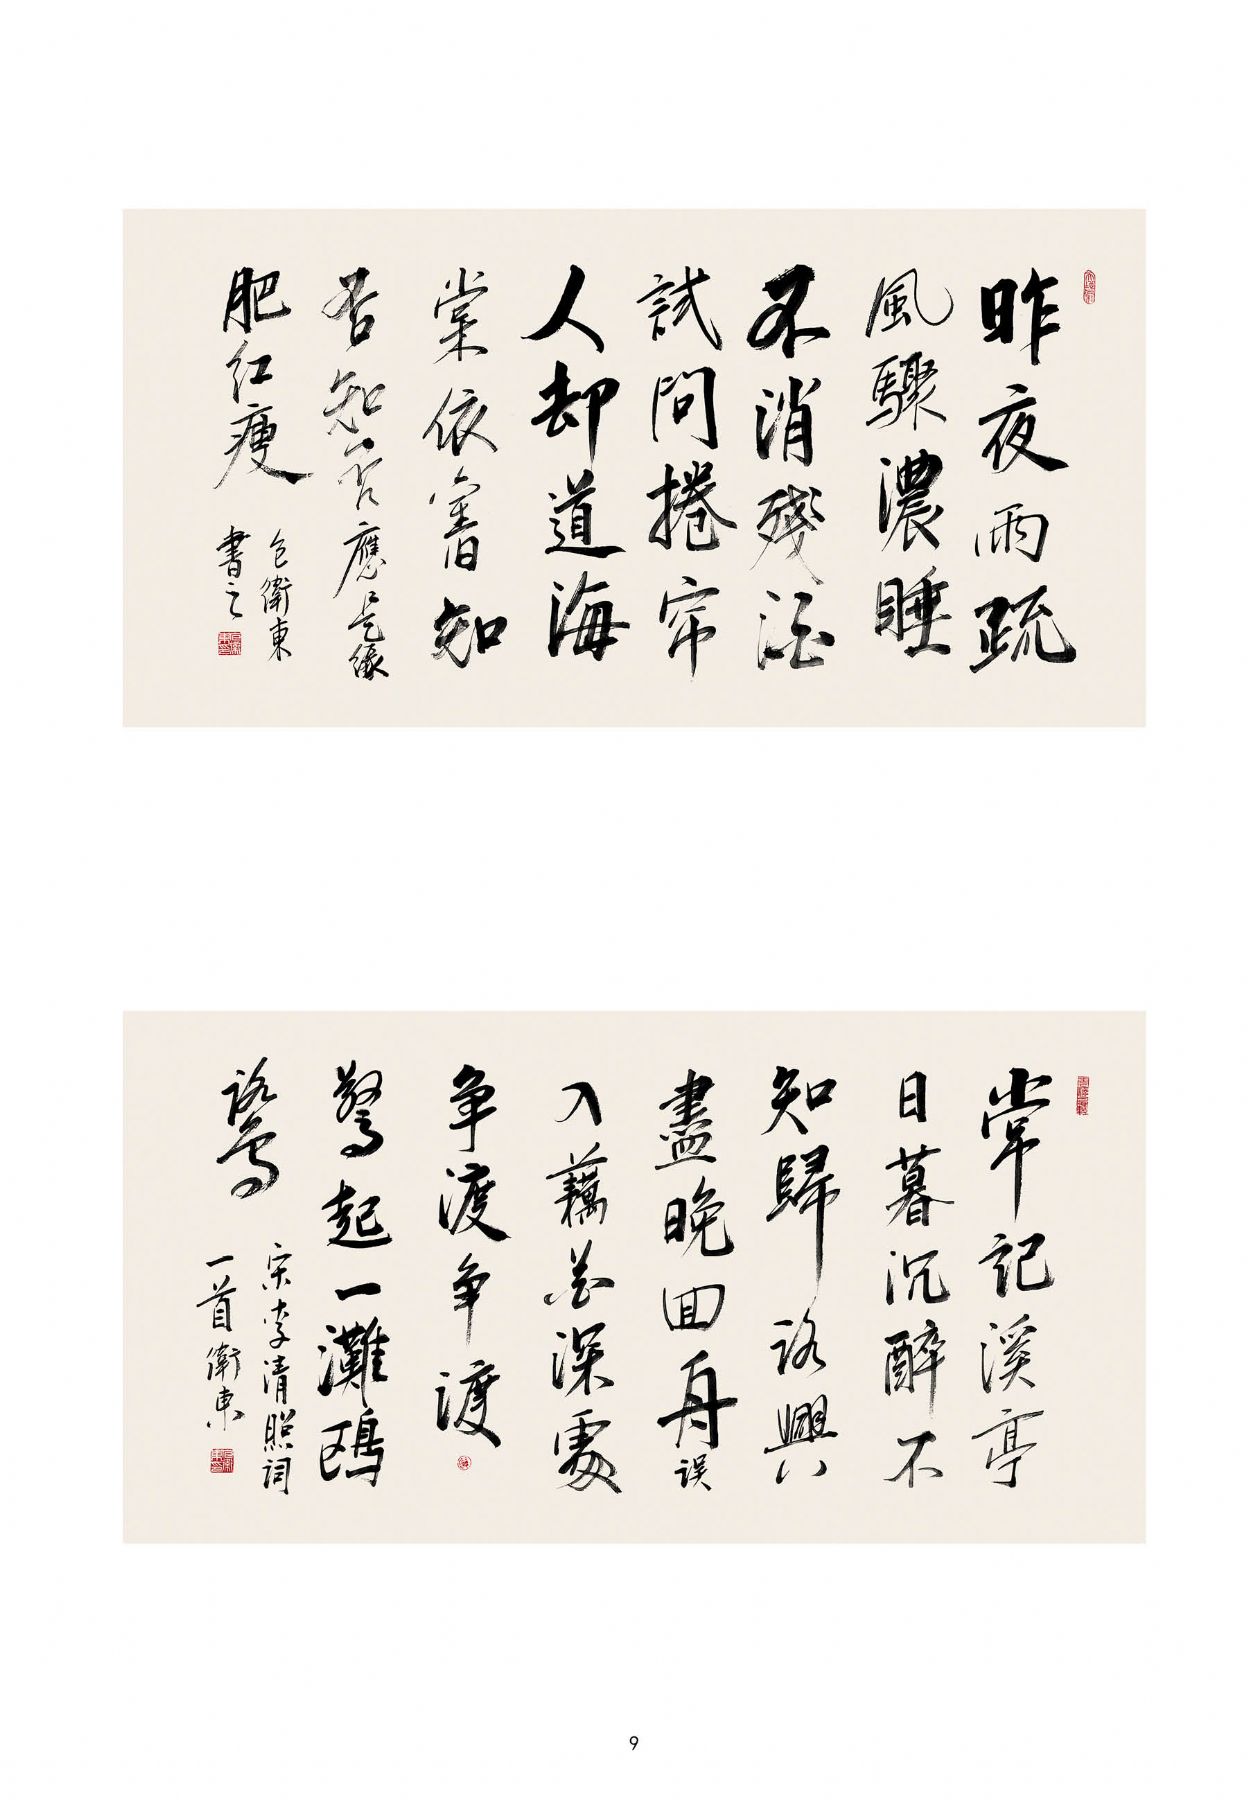 昨夜雨疏
風驟濃睡
不消殘酒
試問捲帘
人却道海
棠依舊知
否知否應是緑
肥红瘦
包衛東
書之
常記溪亭
日暮沉醉不
知歸路興
盡晚回舟誤
入藕花深處
争渡争渡
驚起一灘鷗
鷺
宋李清照詞
一首衛東
9